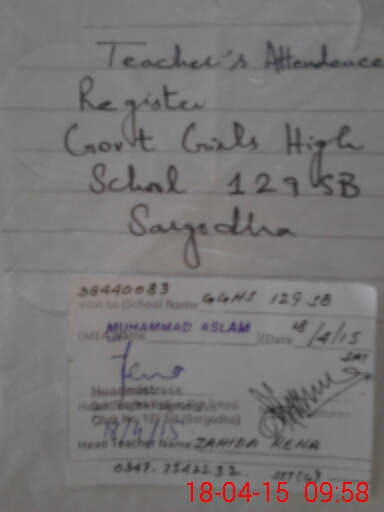 Teacher's Attendence
Register
Govt Girls High
School 129 SB
Sargodha
38440083
Visit to (School Name GGHS 129 SB
(MEA) Name MUHAMMAD ASLAM )(Date 18/4/15
Headmistress
Chak No. 129 SB (Sargodha)
18/4/15
Head Teacher Name ZAHIDA RENA
0347-7542232 SST(G)
18-04-15 09:58